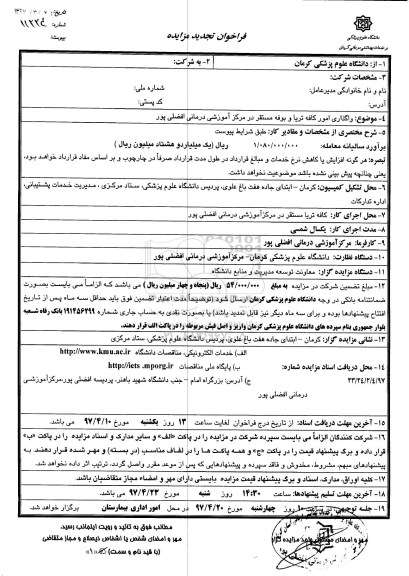 دانشگاه علوم پزشکی
و خدمات بهداشتی درمانی کرمان
فراخوان تجدید مزایده
تاریخ: ۱۳۹۷/۳/۷
شماره:
پیوست:
۱- از: دانشگاه علوم پزشکی کرمان
۲- به شرکت:
۳- مشخصات شرکت:
نام و نام خانوادگی مدیرعامل:
شماره ملی:
آدرس:
کد پستی:
۴- موضوع: واگذاری امور کافه تریا و بوفه مستقر در مرکز آموزشی درمانی افضلی پور
۵- شرح مختصری از مشخصات و مقادیر کار: طبق شرایط پیوست
برآورد سالیانه معامله: ۱/۰۸۰/۰۰۰/۰۰۰ ریال ( یک میلیاردو هشتاد میلیون ریال )
تبصره: هر گونه افزایش یا کاهش نرخ خدمات و مبالغ قرارداد در طول مدت قرارداد صرفاً در چارچوب و بر اساس مفاد قرارداد خواهد بود،
یعنی چنانچه پیش بینی نشده باشد موضوعیت نخواهد داشت.
۶- محل تشکیل کمیسیون: کرمان –ابتدای جاده هفت باغ علوی، پردیس دانشگاه علوم پزشکی، ستاد مرکزی ، مدیریت خدمات پشتیبانی،
اداره تدارکات
۷- محل اجرای کار: کافه تریا مستقر در مرکزآموزشی درمانی افضلی پور
۸- مدت اجرای کار: یکسال شمسی
۹- کارفرما: مرکزآموزشی درمانی افضلی پور
۱۰- دستگاه نظارت: دانشگاه علوم پزشکی کرمان- مرکزآموزشی درمانی افضلی پور
۱۱- دستگاه مزایده گزار: معاونت توسعه مدیریت و منابع دانشگاه
۱۲- مبلغ تضمین شرکت در مزایده به مبلغ ۵۴/۰۰۰/۰۰۰ ریال (پنجاه و چهار میلیون ریال) می باشد که الزاماً می بایست بصورت
ضمانتنامه بانکی در وجه دانشگاه علوم پزشکی کرمان ارسال شود (توضیحاً مدت اعتبار تضمین فوق باید حداقل سه ماه پس از تاریخ
افتتاح پیشنهادها بوده و برای سه ماه دیگر نیز قابل تمدید باشد) یا بصورت نقدی به حساب جاری شماره ۱۹۱۴۵۶۲۹۹ بانک رفاه شعبه
بلوار جمهوری بنام سپرده های دانشگاه علوم پزشکی کرمان واریز و اصل فیش مربوطه را در پاکت الف قرار دهند.
۱۳- نشانی مزایده گزار: کرمان – ابتدای جاده هفت باغ علوی، پردیس دانشگاه علوم پزشکی، ستاد مرکزی
۱۴- محل دریافت اسناد مزایده شماره:
۲۳/۲۴/۲/۴/۹۷
الف) خدمات الکترونیکی، مناقصات دانشگاه http://www.kmu.ac.ir
ب) پایگاه ملی مناقصات http://iets.mporg.ir
ج) آدرس: بزرگراه امام –جنب دانشگاه شهید باهنر، پردیسه افضلی پور،مرکزآموزشی
درمانی افضلی پور
۱۵- آخرین مهلت دریافت اسناد: از تاریخ درج فراخوان لغایت ساعت ۱۳ روز یکشنبه مورخ ۹۷/۴/۱۰ می باشد.
۱۶- شرکت کنندگان الزاماً می بایست سپرده شرکت در مزایده را در پاکت «الف» و سایر مدارک و اسناد مزایده را در پاکت «ب»
قرار داده و برگ پیشنهاد قیمت را در پاکت «ج» و همه پاکت ها را در لفاف مناسب (در بسته) و مهر شده قرار دهند. به
پیشنهادهای مبهم، مشروط، مخدوش و فاقد سپرده و پیشنهادهایی که پس از موعد مقرر واصل گردد، ترتیب اثر داده نخواهد شد.
۱۷- کلیه اوراق، مدارک، اسناد و برگ پیشنهاد قیمت مزایده بایستی دارای مهر و امضاء مجاز متقاضیان باشد.
۱۸- آخرین مهلت تسلیم پیشنهادها: ساعت ۱۴:۳۰ روز شنبه مورخ ۹۷/۴/۲۳ می باشد.
۱۹- جلسه توجیهی: ساعت ۱۰ روز چهارشنبه مورخ ۹۷/۴/۲۰ در محل امور اداری بیمارستان برگزار خواهد شد.
مهر و امضای
مطالب فوق به تائید و رویت اینجانب رسید.
مهر و امضای شخص یا اشخاص ذیصلاح و مجاز متقاضی
(با قید نام و سمت)